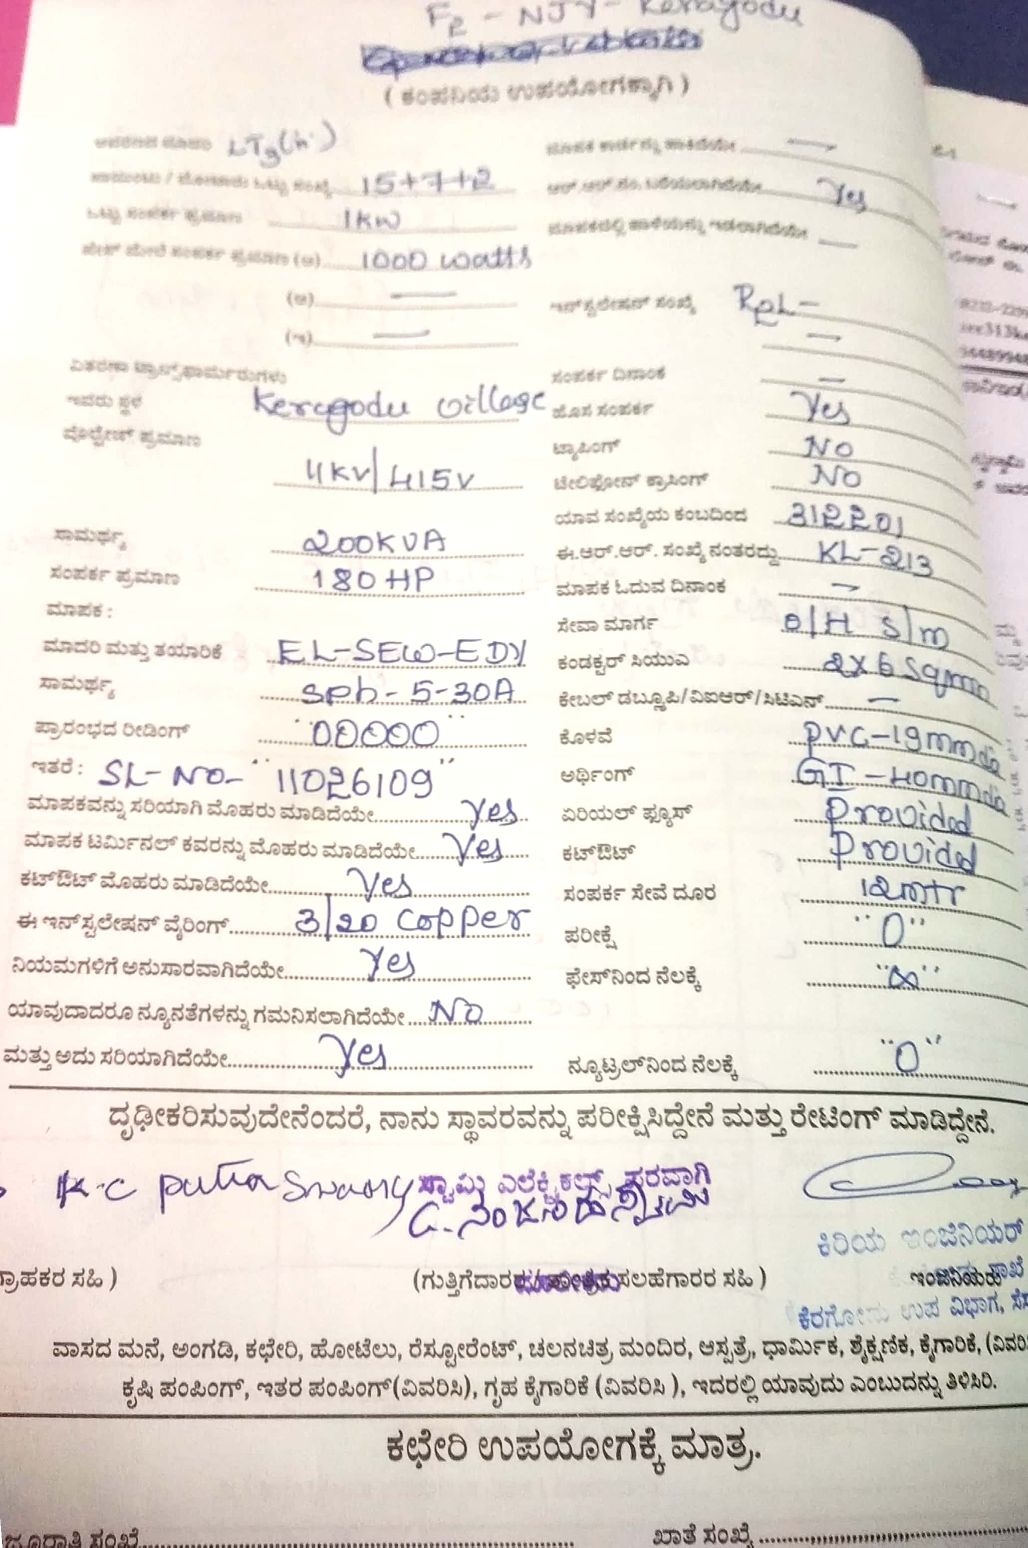 F2 - NJY - Keragodu
( ಕಂಪನಿಯ ಉಪಯೋಗಕ್ಕಾಗಿ )
LT3(h)
15+7+2
Yes
ಒಟ್ಟು ಸಂಪರ್ಕ ಪ್ರಮಾಣ 1kw
1000 watts
(ಆ) —
ಇನ್‌ಸ್ಟಲೇಷನ್ ಸಂಖ್ಯೆ
(ಇ) —
ವಿತರಣಾ ಟ್ರಾನ್ಸ್‌ಫಾರ್ಮರುಗಳು
ಸಂಪರ್ಕ ದಿನಾಂಕ —
ಇವರು ಸ್ಥಳ Keragodu village
ಹೊಸ ಸಂಪರ್ಕ Yes
ವೋಲ್ಟೇಜ್ ಪ್ರಮಾಣ 11KV/415V
ಟ್ಯಾಪಿಂಗ್ NO
ಟೆಲಿಫೋನ್ ಕ್ರಾಸಿಂಗ್ NO
ಯಾವ ಸಂಖ್ಯೆಯ ಕಂಬದಿಂದ
ಸಾಮರ್ಥ್ಯ 200KVA
ಈ.ಆರ್.ಆರ್. ಸಂಖ್ಯೆ ನಂತರದ್ದು KL-213
ಸಂಪರ್ಕ ಪ್ರಮಾಣ 180HP
ಮಾಪಕ ಓದುವ ದಿನಾಂಕ —
ಮಾಪಕ :
ಸೇವಾ ಮಾರ್ಗ O/H S/m
ಮಾದರಿ ಮತ್ತು ತಯಾರಿಕೆ EL-SEW-EDY
ಕಂಡಕ್ಟರ್ ಸಿಯುಎ 2x6 Sqmm
ಸಾಮರ್ಥ್ಯ Sph-5-30A
ಕೇಬಲ್ ಡಬ್ಲ್ಯೂಪಿ/ವಿಐಆರ್/ಸಿಟಿಎನ್ —
ಪ್ರಾರಂಭದ ರೀಡಿಂಗ್ "00000"
ಕೊಳವೆ PVC-19mmdia
ಇತರೆ : SL-NO- "11026109"
ಅರ್ಥಿಂಗ್ GI-40mmdia
ಮಾಪಕವನ್ನು ಸರಿಯಾಗಿ ಮೊಹರು ಮಾಡಿದೆಯೇ Yes
ಏರಿಯಲ್ ಫ್ಯೂಸ್ Provided
ಮಾಪಕ ಟರ್ಮಿನಲ್ ಕವರನ್ನು ಮೊಹರು ಮಾಡಿದೆಯೇ Yes
ಕಟ್‌ಔಟ್ Provided
ಕಟ್‌ಔಟ್ ಮೊಹರು ಮಾಡಿದೆಯೇ Yes
ಸಂಪರ್ಕ ಸೇವೆ ದೂರ 12mtr
ಈ ಇನ್‌ಸ್ಟಲೇಷನ್ ವೈರಿಂಗ್ 3/20 Copper
ಪರೀಕ್ಷೆ "0"
ನಿಯಮಗಳಿಗೆ ಅನುಸಾರವಾಗಿದೆಯೇ Yes
ಫೇಸ್‌ನಿಂದ ನೆಲಕ್ಕೆ "∞"
ಯಾವುದಾದರೂ ನ್ಯೂನತೆಗಳನ್ನು ಗಮನಿಸಲಾಗಿದೆಯೇ NO
ಮತ್ತು ಅದು ಸರಿಯಾಗಿದೆಯೇ Yes
ನ್ಯೂಟ್ರಲ್‌ನಿಂದ ನೆಲಕ್ಕೆ "0"
ದೃಢೀಕರಿಸುವುದೇನೆಂದರೆ, ನಾನು ಸ್ಥಾವರವನ್ನು ಪರೀಕ್ಷಿಸಿದ್ದೇನೆ ಮತ್ತು ರೇಟಿಂಗ್ ಮಾಡಿದ್ದೇನೆ.
K.C putta Swamy
ಸ್ವಾಮಿ ಎಲೆಕ್ಟ್ರಿಕಲ್ಸ್ ಪರವಾಗಿ
ಕಿರಿಯ ಇಂಜಿನಿಯರ್
ಗ್ರಾಹಕರ ಸಹಿ )
ಸಲಹೆಗಾರರ ಸಹಿ )
ಇಂಜಿನಿಯರು
ಉಪ ವಿಭಾಗ,
ವಾಸದ ಮನೆ, ಅಂಗಡಿ, ಕಛೇರಿ, ಹೋಟೆಲು, ರೆಸ್ಟೋರೆಂಟ್, ಚಲನಚಿತ್ರ ಮಂದಿರ, ಆಸ್ಪತ್ರೆ, ಧಾರ್ಮಿಕ, ಶೈಕ್ಷಣಿಕ, ಕೈಗಾರಿಕೆ, (ವಿವರಿ
ಕೃಷಿ ಪಂಪಿಂಗ್, ಇತರ ಪಂಪಿಂಗ್(ವಿವರಿಸಿ), ಗೃಹ ಕೈಗಾರಿಕೆ (ವಿವರಿಸಿ ), ಇದರಲ್ಲಿ ಯಾವುದು ಎಂಬುದನ್ನು ತಿಳಿಸಿರಿ.
ಕಛೇರಿ ಉಪಯೋಗಕ್ಕೆ ಮಾತ್ರ.
ಜೂರಾತಿ ಸಂಖ್ಯೆ
ಖಾತೆ ಸಂಖ್ಯೆ